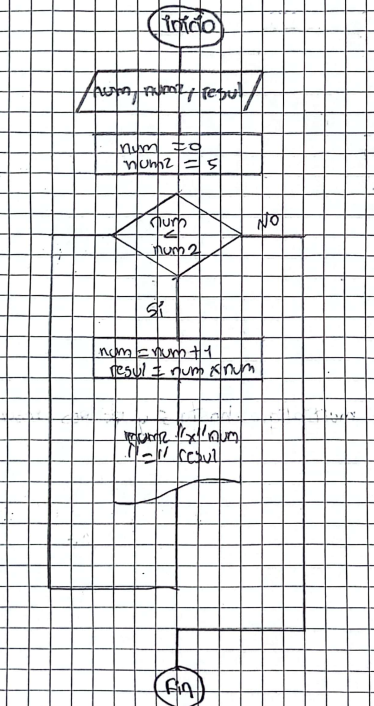 inicio
num, num2, resul
num = 0
num2 = 5
num
<
num2
NO
Si
num = num + 1
resul = num x num
num2 "x" num
"=" resul
Fin